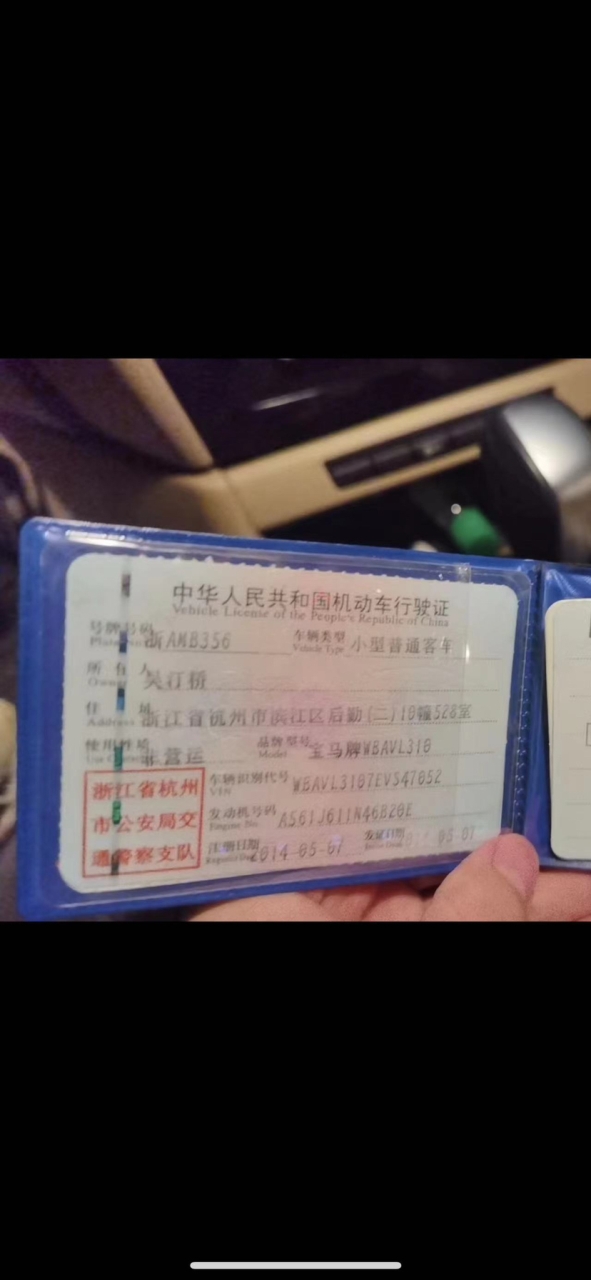 中华人民共和国机动车行驶证
Vehicle License of the People's Republic of China
号牌号码 浙AMB356 车辆类型 小型普通客车
Plate No. Vehicle Type
所有人 吴汀桥
Owner
住址 浙江省杭州市滨江区后勤(二)10幢528室
Address
使用性质 非营运 品牌型号 宝马牌WBAVL310
Use Character Model
浙江省杭州
市公安局交
通警察支队
车辆识别代号 WBAVL3107EVS47052
VIN
发动机号码 A561J611N46B20E
Engine No.
注册日期 2014-05-07 发证日期 05-07
Register Date Issue Date